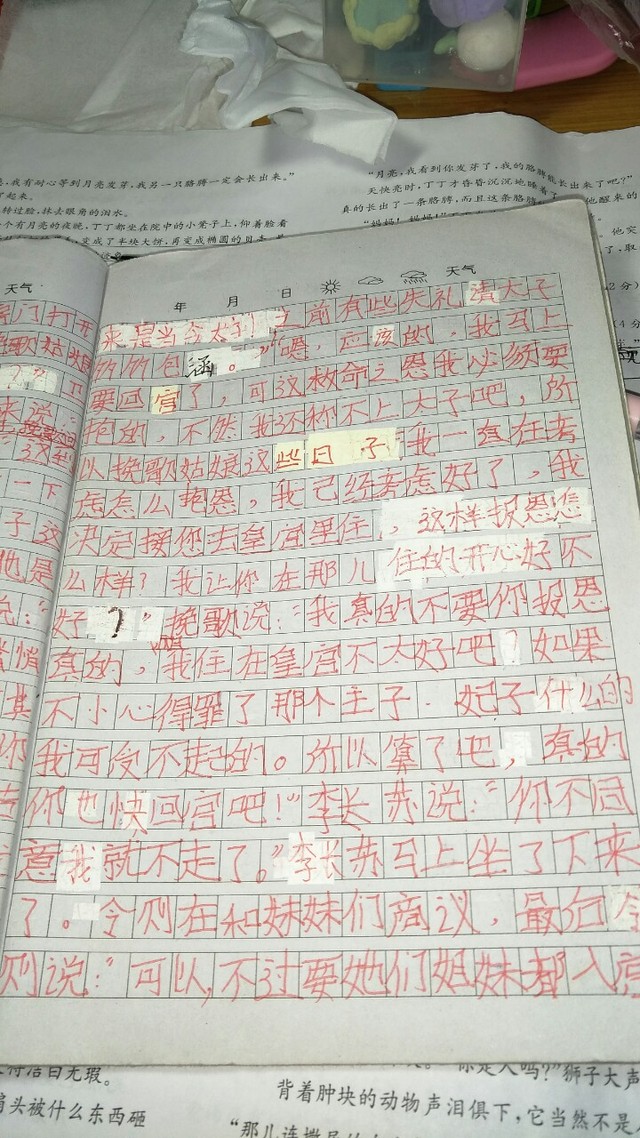 亮,我有耐心等到月亮发芽,我另一只胳膊一定会长出来。”
了起来。
转过脸,抹去眼角的泪水。
个有月亮的夜晚,丁丁都坐在院中的小凳子上,仰着脸看
变成了半块大饼,再变成椭圆的
“月亮,我看到你发芽了,我的胳膊能长出来了吧?”
天快亮时,丁丁才昏昏沉沉地睡着了
真的长出了一条胳膊,而且这条胳
他醒来的
“妈妈!妈妈!”
他突
了,取
2分)
(4分
天气
年 月 日 天气
门打开
挽歌姑娘
?”
来说
一下
子这
他是
说:“
悄
其
你
来是当今太子之前有些失礼请太子
的的包涵。”“嗯,应该的,我马上
要回宫了,可这救命之恩我必须要
抱的,不然我还称不上太子吧,所
以挽歌姑娘这些日子我一直在考
虑怎么抱恩,我已经考虑好了,我
决定接您去皇宫里住,这样报恩怎
么样?我让你在那儿住的开心好不
好?”挽歌说:“我真的不要你报恩
真的,我住在皇宫不太好吧?如果
不小心得罪了那个主子.妃子什么的
我可受不起的。所以算了吧,真的
你也快回宫吧!”李长苏说:“你不同
意我就不走了。”李长苏马上坐了下来
了。令则在和妹妹们商议,最后令
则说:“可以,不过要她们姐妹都入宫
洁白无瑕。
肩头被什么东西砸
你是人吗?”狮子大声
背着肿块的动物声泪俱下,它当然不是人
“那儿连撒